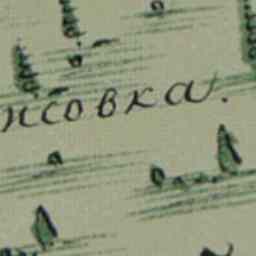 исовка.